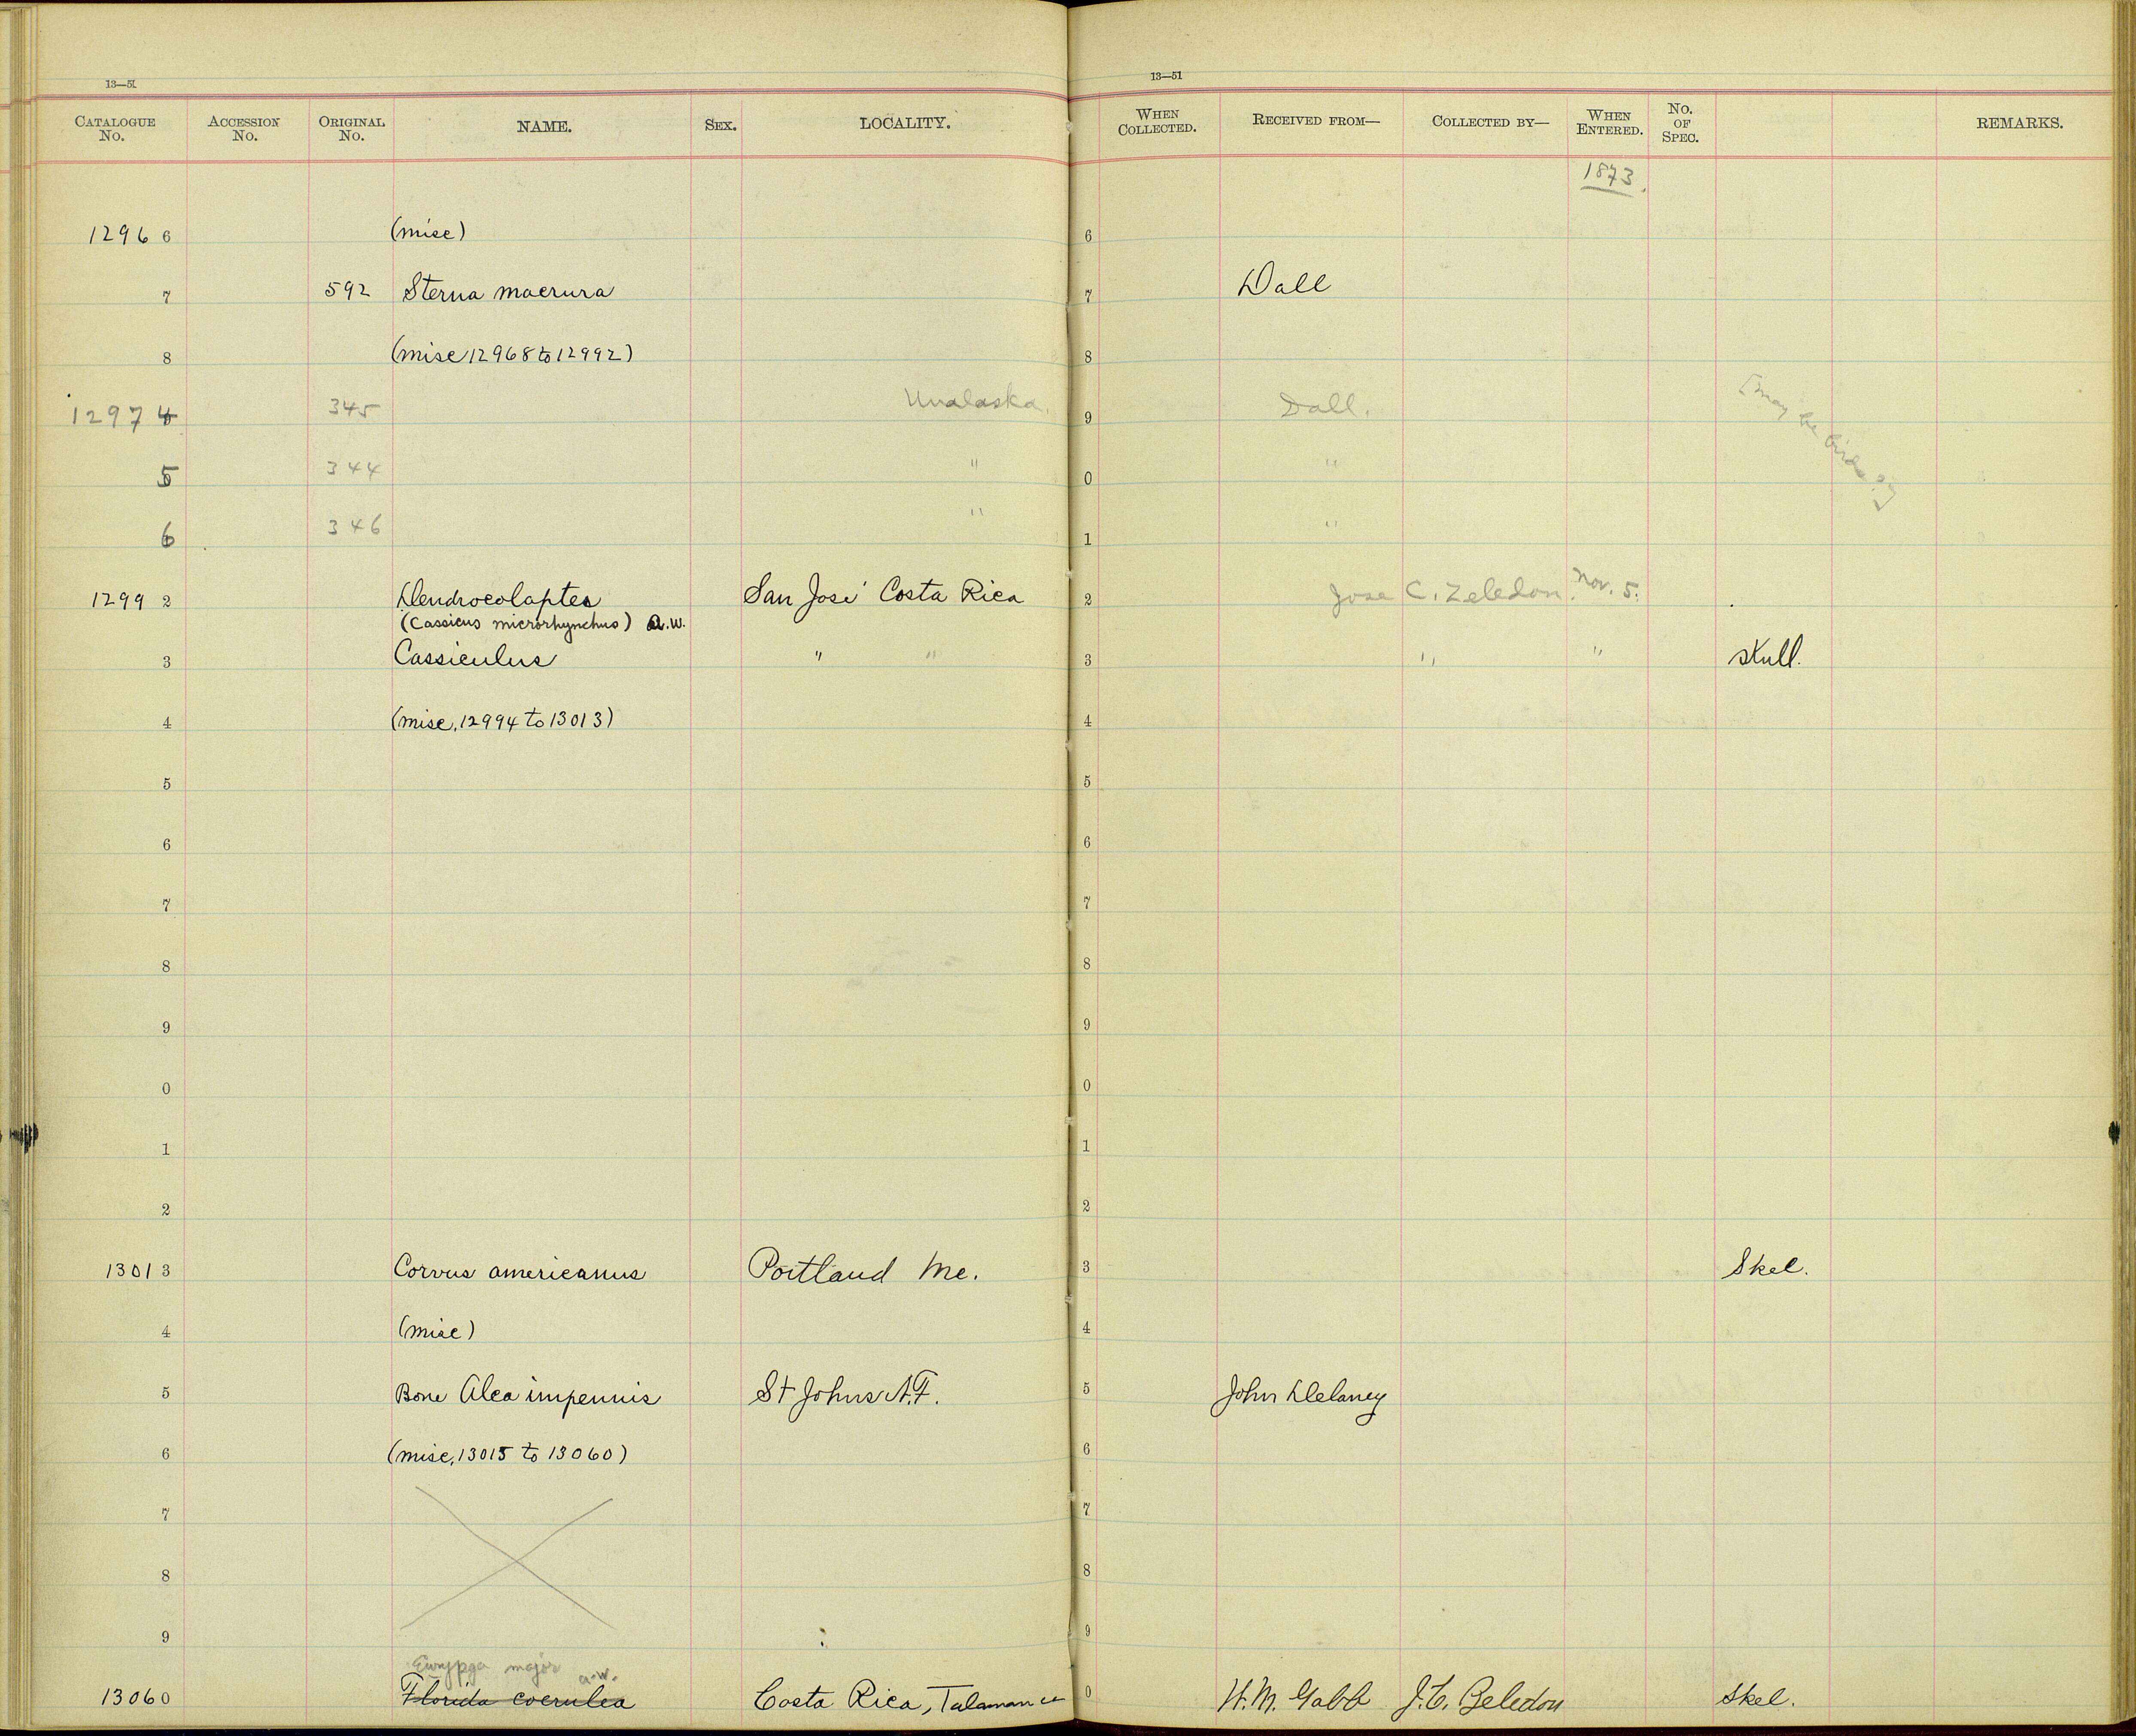 13—51
13—51
CATALOGUE No. ACCESSION No. ORIGINAL No. NAME. SEX. LOCALITY. WHEN COLLECTED. RECEIVED FROM— COLLECTED BY— WHEN ENTERED. No. OF SPEC. REMARKS.
1873.
12966 (misc) 6
7 592 Sterna macrura 7 Dall
8 (misc 12968 to 12992) 8
12974 345 Unalaska. 9 Dall. [may be birds?]
5 344 " 0 "
6 346 " 1 "
12992 Dendrocolaptes San José Costa Rica 2 Jose C. Zeledon. Nov. 5.
(Cassicus microrhynchus) A.W.
3 Cassiculus " " 3 " " Skull.
4 (misc, 12994 to 13013) 4
5 5
6 6
7 7
8 8
9 9
0 0
1 1
2 2
13013 Corvus americanus Portland Me. 3 Skel.
4 (misc) 4
5 Bone Alca impennis St Johns N.F. 5 John Delaney
6 (misc, 13015 to 13060) 6
7 7
8 8
9 9
Eurypga major a.w.
13060 Florida coerulea Costa Rica, Talamanca 0 W. M. Gabb J. C. Zeledon Skel.